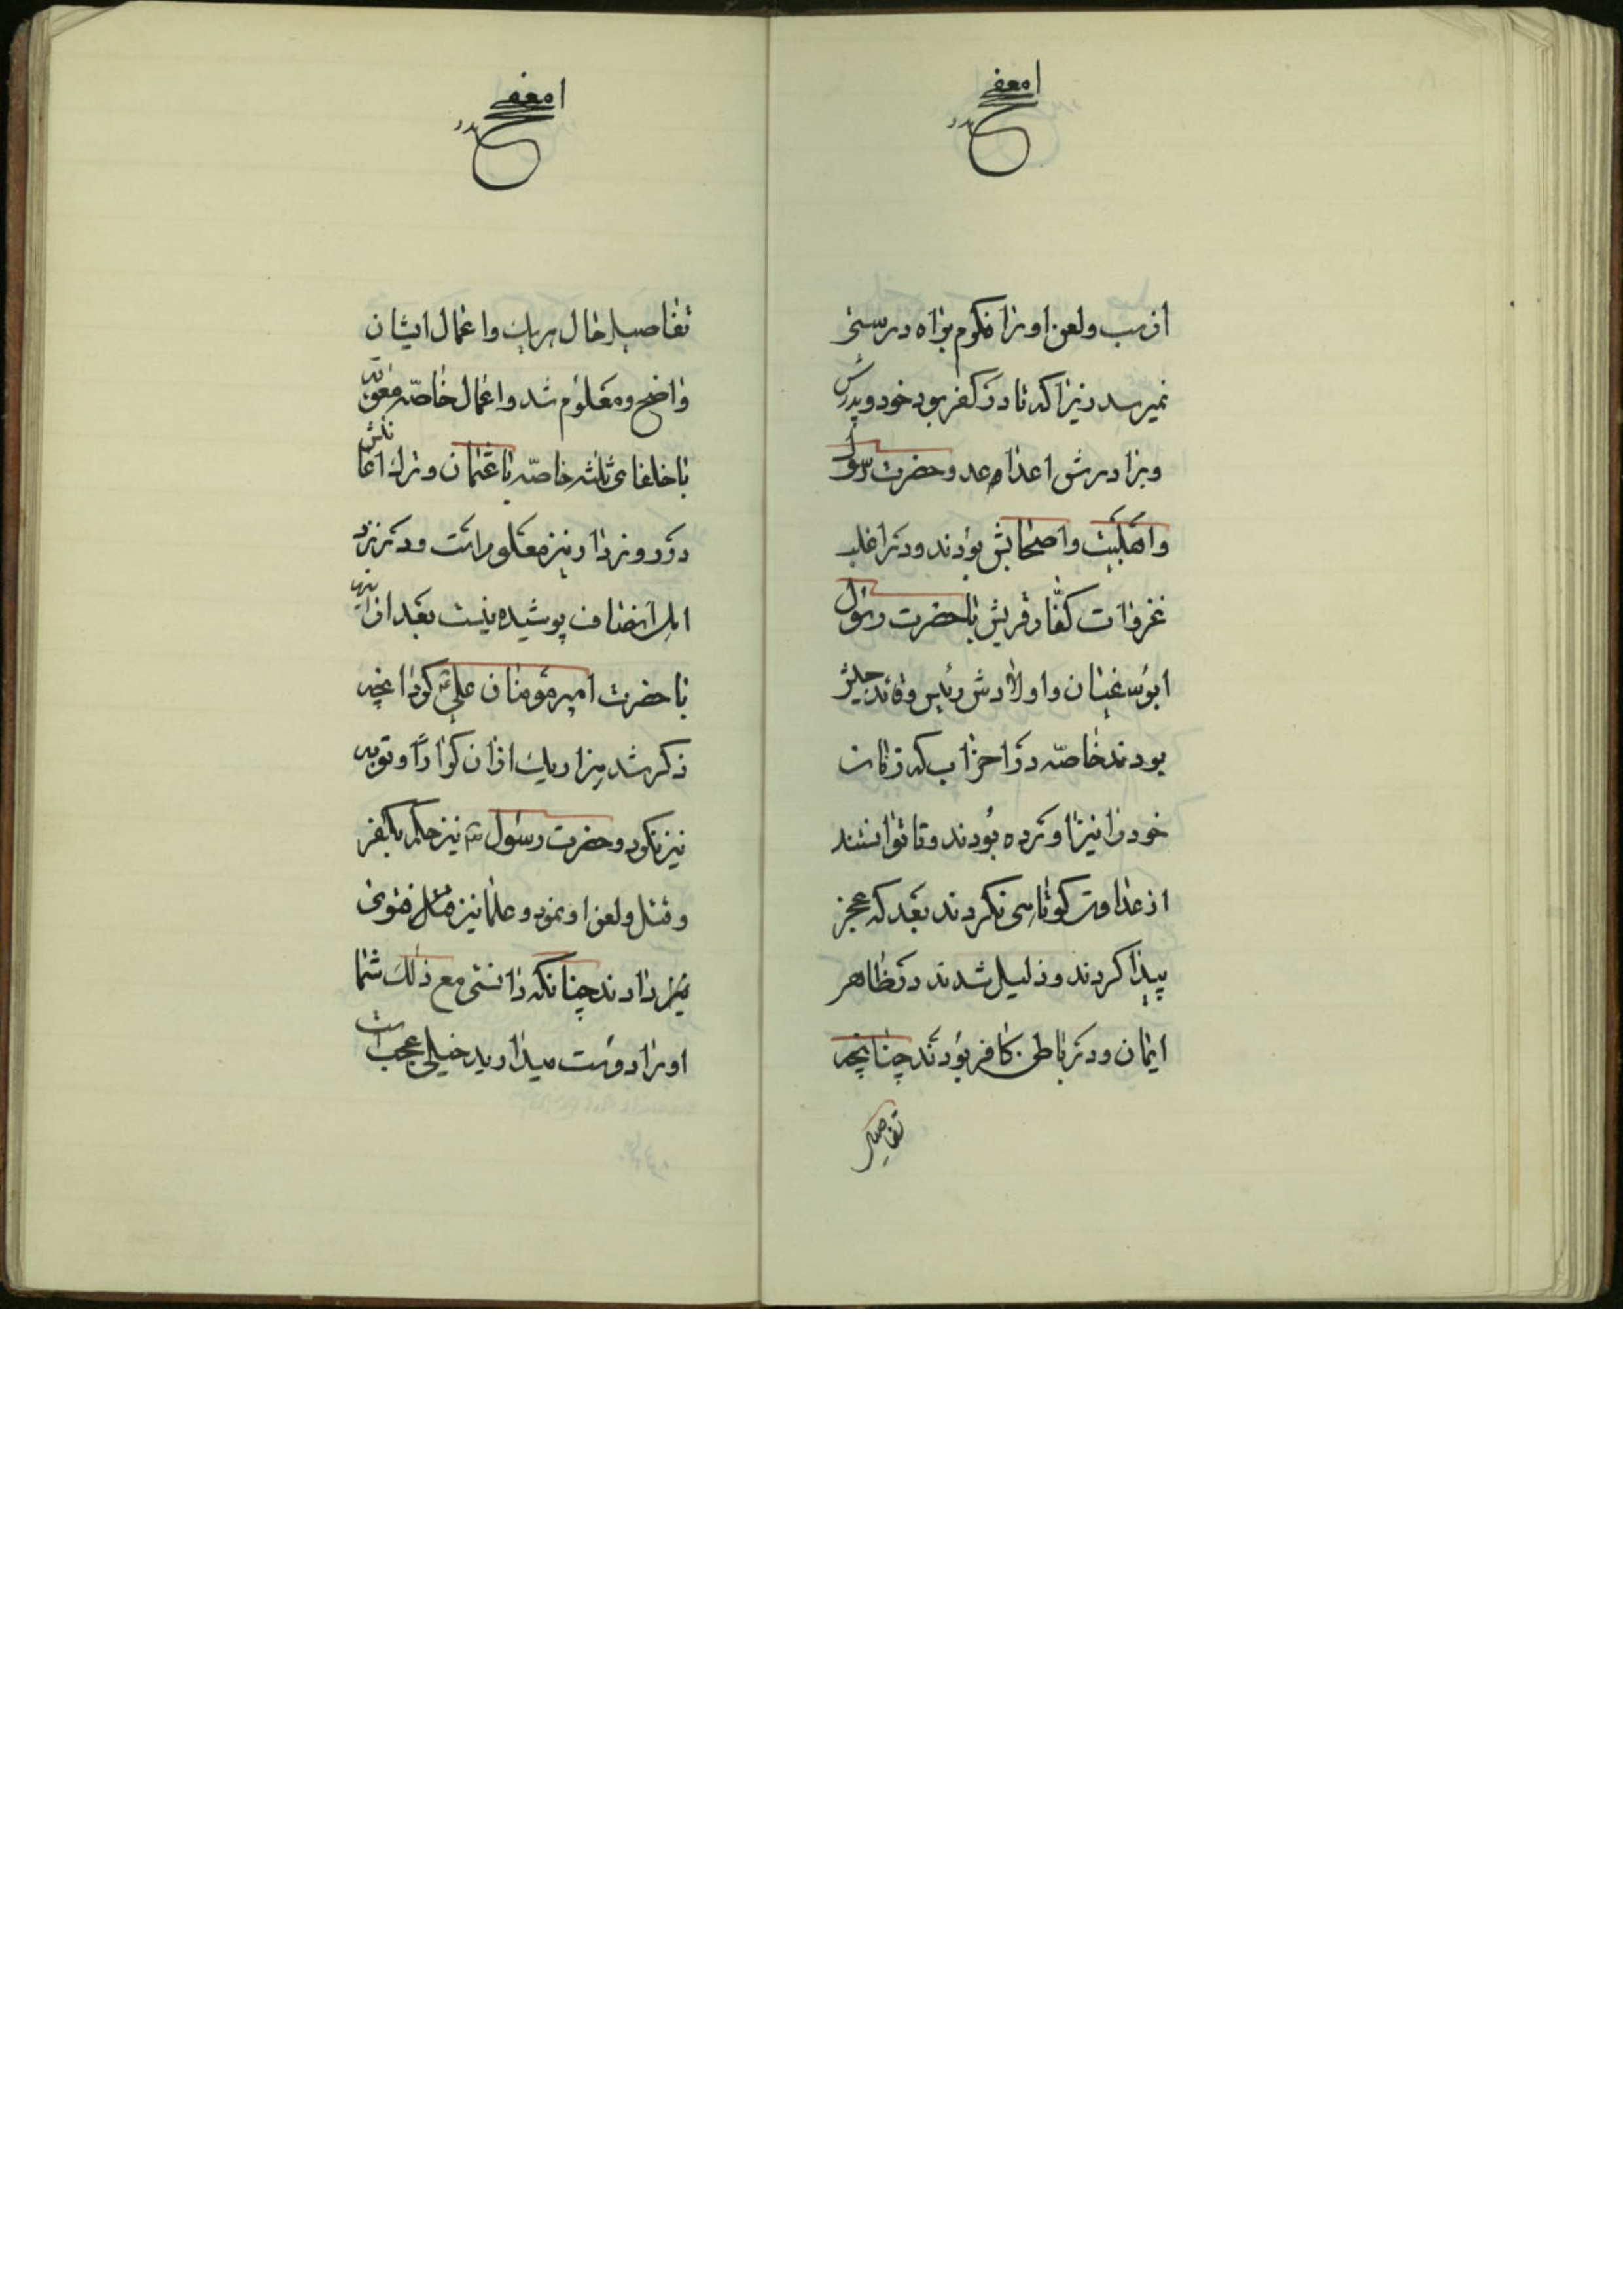 از سب ولعن اورا محکوم براه درستی
نمیرسد زیرا که تا در کفر بود خود و پدرش
و برادرش اعدا عدو حضرت رسول
و اهلبیت و اصحابش بودند و در اغلب
غزوات کفّار قریش با حضرت رسول
ابوسفیان و اولادش رئیس وقائد جلیش
بودند خاصّه در احزاب که زنان
خود را نیز آورده بودند و تا توانستند
از عداوت کوتاهی نکردند بعد که عجز
پیدا کردند و ذلیل شدند در ظاهر
ایمان و در باطن کافر بودند چنانچه
تفاصیل
تفاصیل حال هریک و اعمال ایشان
واضح و معلوم شد و اعمال خاصّه معویه
با خلفای ثلثه خاصّه با عثمان و ترک اعانتش
در روز دار نیز معلوم است و در نزد
اهل انصاف پوشیده نیست بعد ازان
با حضرت امیر مومنان علی کرد انچه
ذکر شد هزار یک ازان کرارًا و توبه
نیز نکرد و حضرت رسول نیز حکم بکفر
و قتل ولعن او نمود و علما نیز فتوی
دادند چنانکه دانستی مع ذلک شما
اورا دوست میدارید خیلی عجب است